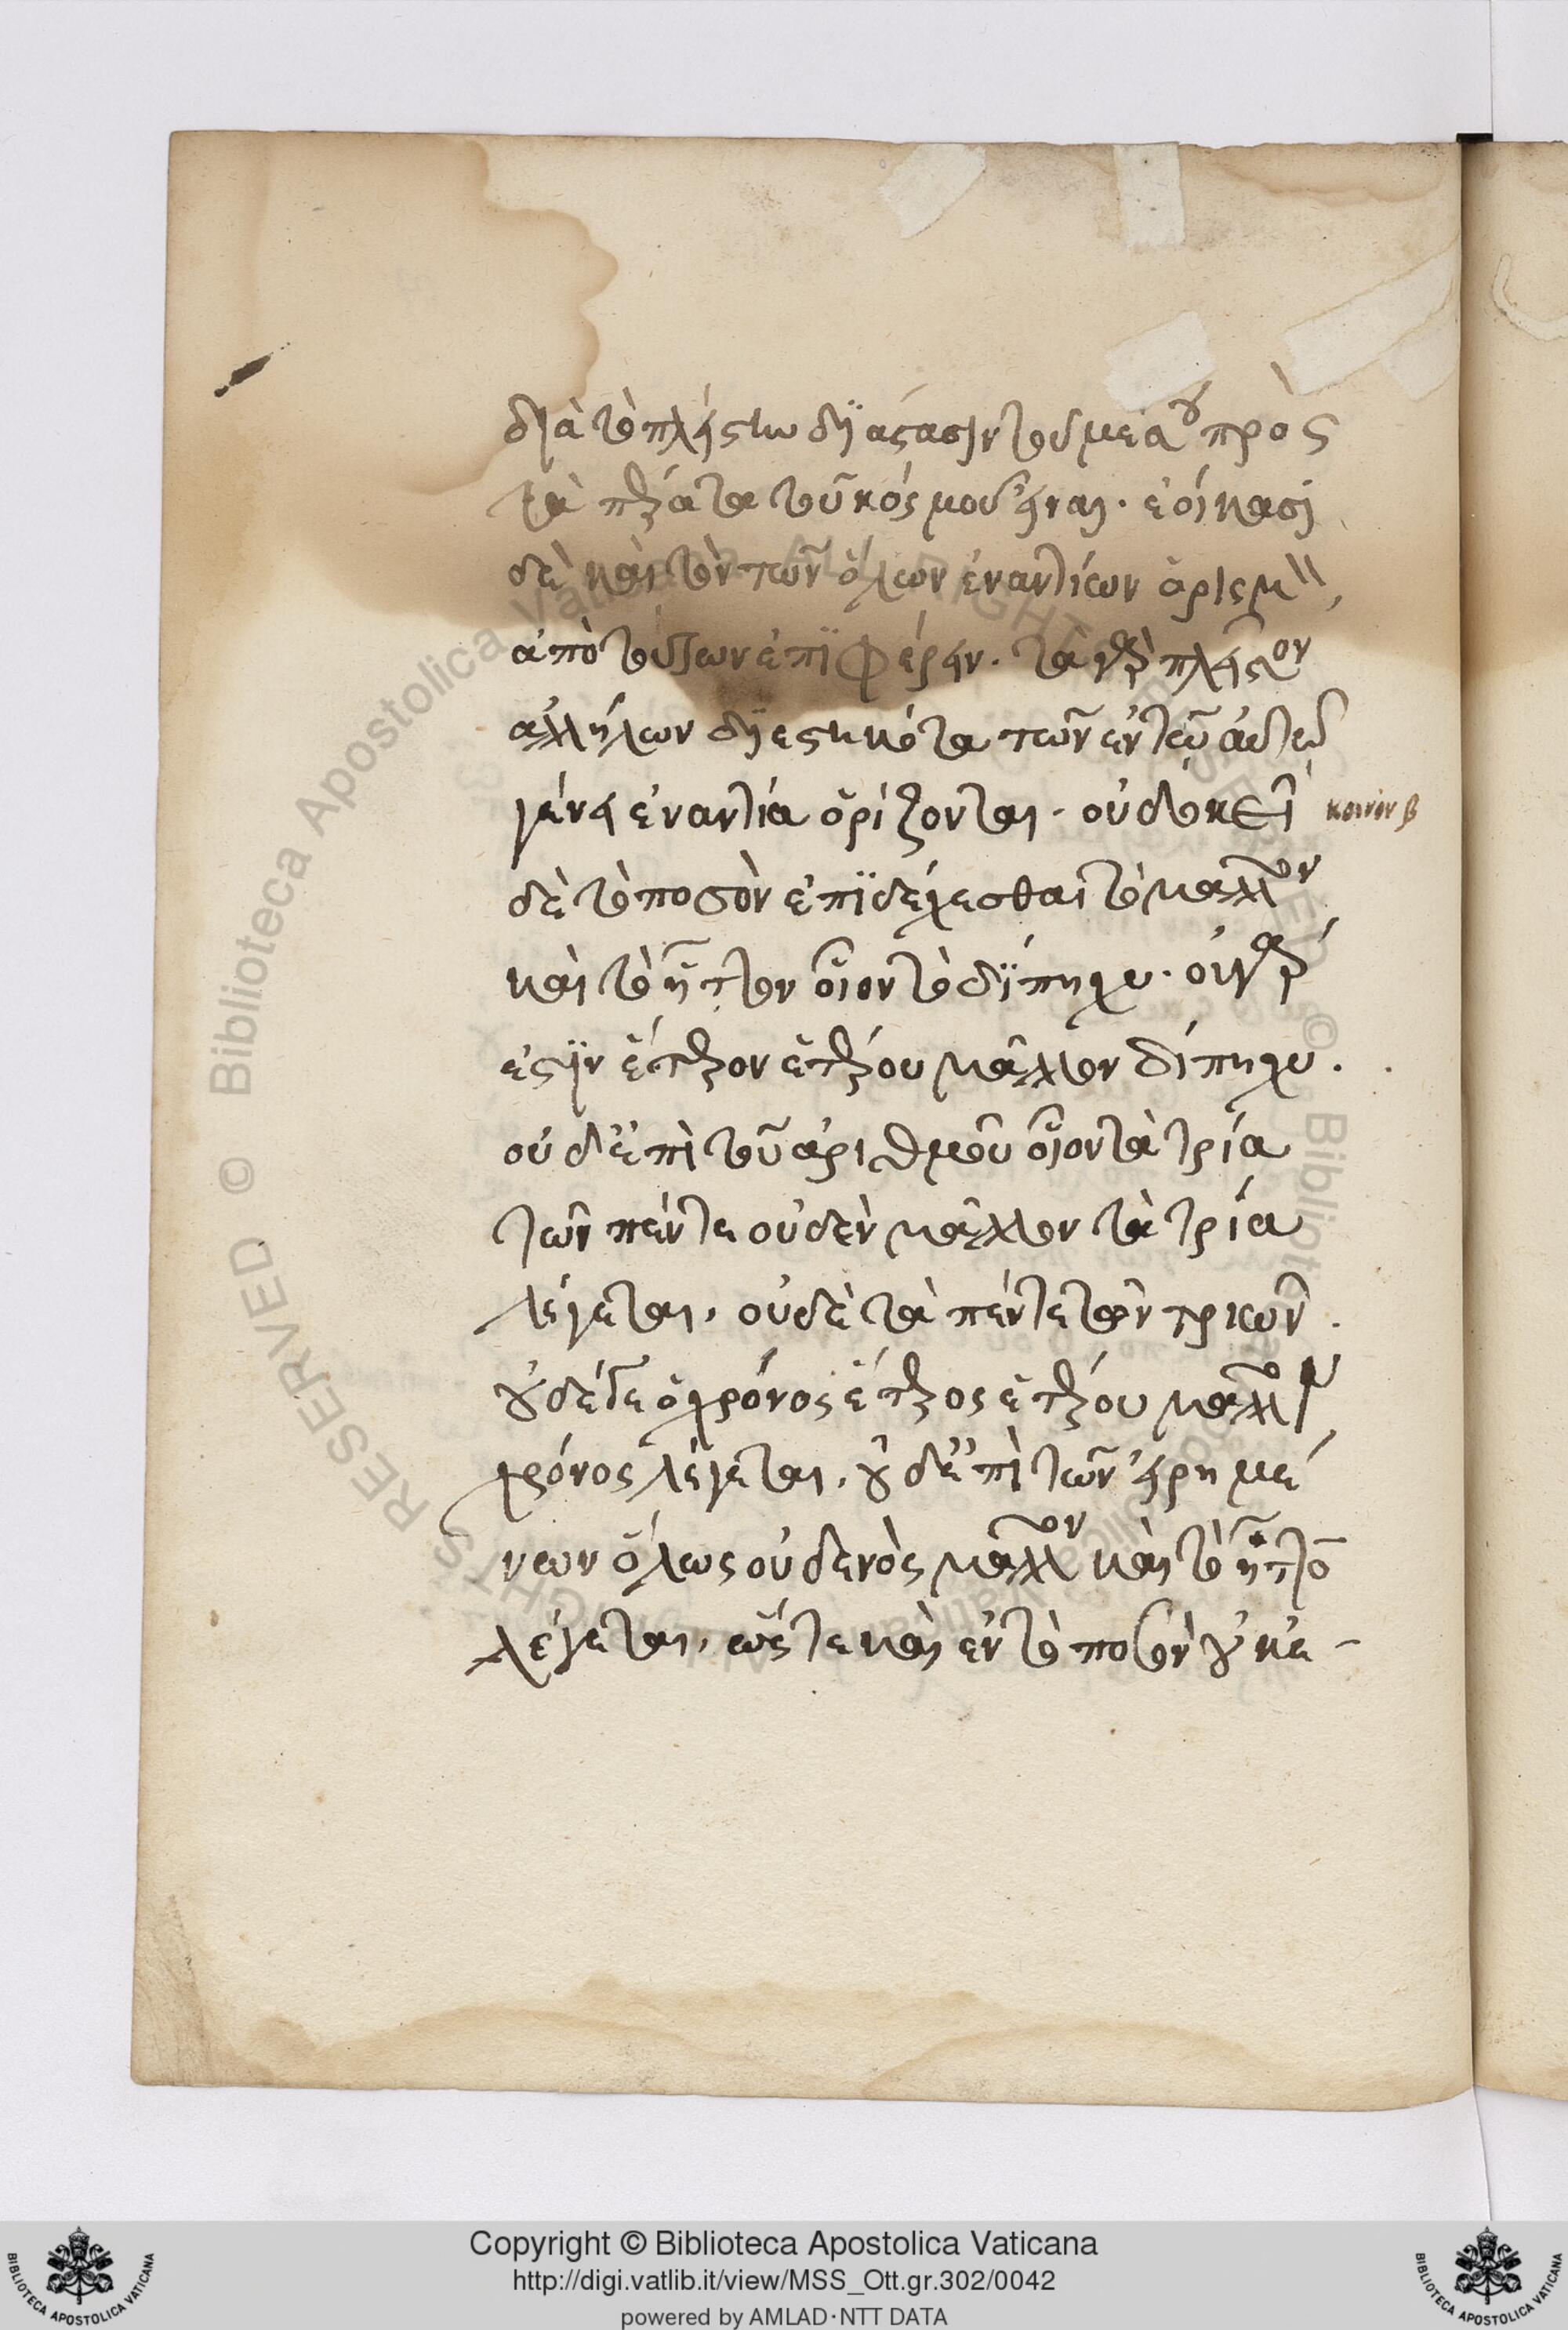 διὰ τὸ πλείστην διάστασιν τοῦ μέσου πρὸς
τὰ πέρατα τοῦ κόσμου εἶναι. ἐοίκασι
δὲ καὶ τὸν τῶν ὅλων ἐναντίων ὁρισμὸν
ἀπὸ τούτων ἐπιφέρειν. τὰ γὰρ πλεῖστον
ἀλλήλων διεστηκότα τῶν ἐν τῷ αὐτῷ
γένει ἐναντία ὁρίζονται. οὐ δοκεῖ
κοινὸν β
δὲ τὸ ποσὸν ἐπιδέχεσθαι τὸ μᾶλλον
καὶ τὸ ἧττον οἷον τὸ δίπηχυ. οὐ γάρ
ἐστιν ἕτερον ἑτέρου μᾶλλον δίπηχυ.
οὐδ' ἐπὶ τοῦ ἀριθμοῦ οἷον τὰ τρία
τῶν πέντε οὐδὲν μᾶλλον τὰ τρία
λέγεται, οὐδὲ τὰ πέντε τῶν τριῶν.
οὐδέ γε ὁ χρόνος ἕτερος ἑτέρου μᾶλλον
χρόνος λέγεται, οὐδ' ἐπὶ τῶν εἰρημέ
νων ὅλως οὐδενὸς μᾶλλον καὶ τὸ ἧττον
λέγεται, ὥστε καὶ ἐν τὸ ποσὸν οὐκ ἐ-
Copyright © Biblioteca Apostolica Vaticana
http://digi.vatlib.it/view/MSS_Ott.gr.302/0042
powered by AMLAD·NTT DATA